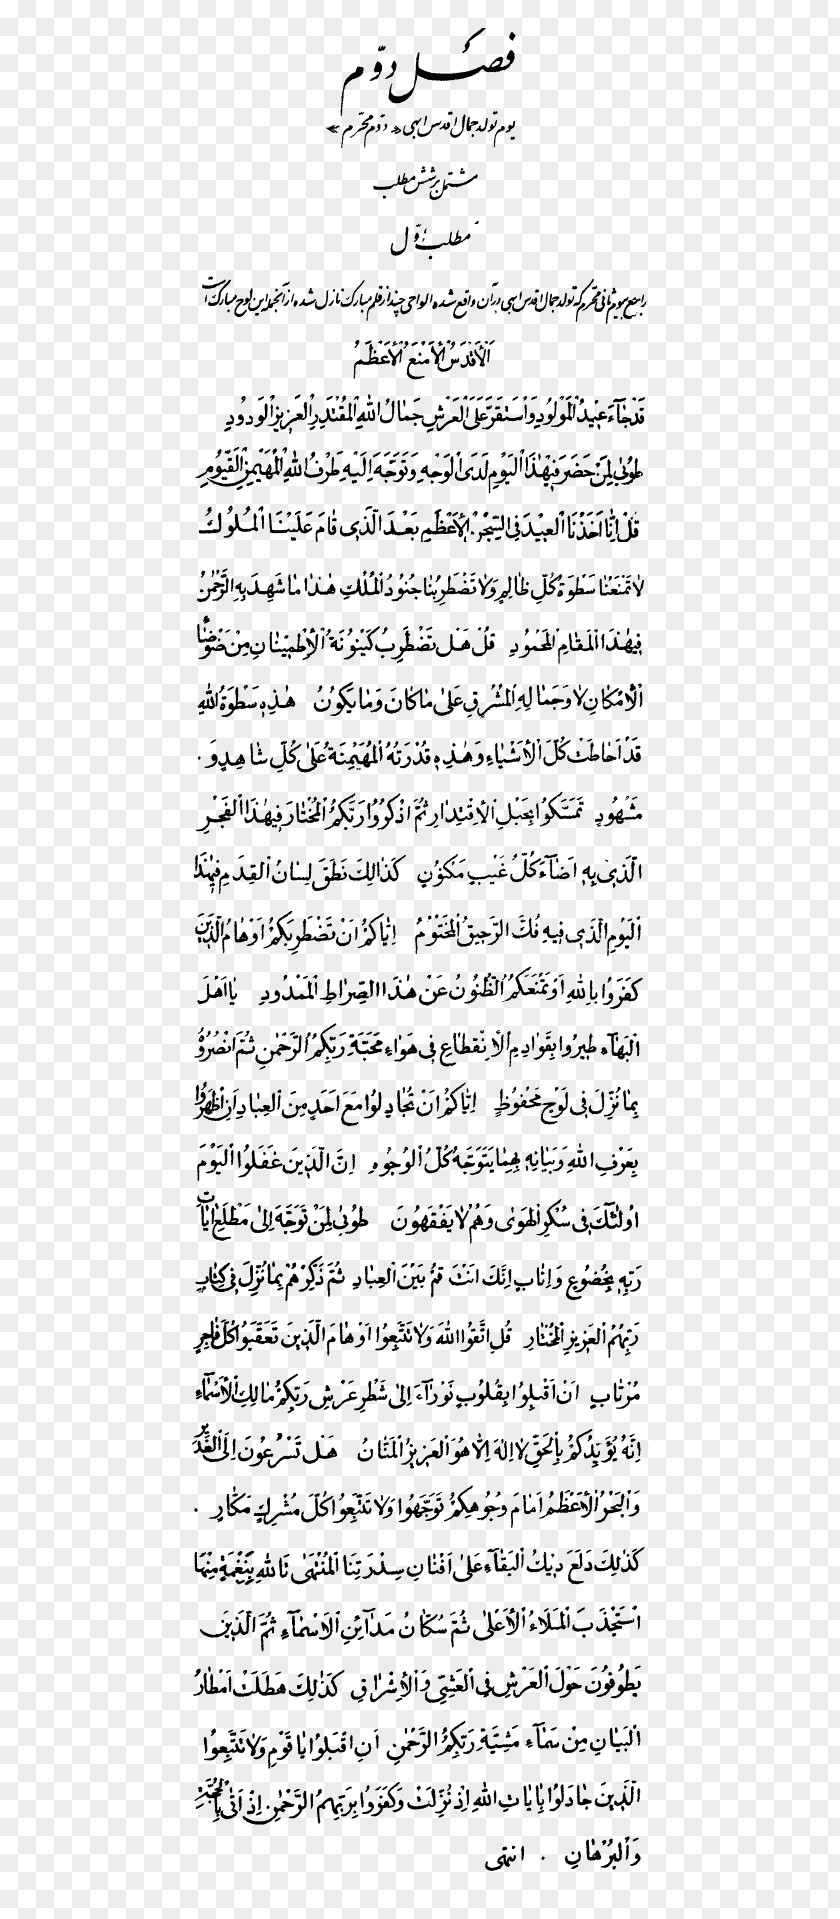 فصل دوّم
یوم تولد جمال اقدس ابهی « دوّم محرّم »
مشتمل بر شش مطلب
مطلب اوّل
راجع بیوم ثانی محرّم که تولد جمال اقدس ابهی در آن واقع شده الواحی چند از قلم مبارک نازل شده از آنجمله این لوح مبارک است
اَلْأَقْدَسُ الْأَمْنَعُ الْأَعْظَمُ
قَدْ جَآءَ عِیْدُ الْمَوْلُودِ وَاسْتَقَرَّ عَلَی الْعَرْشِ جَمَالُ اللهِ الْمُقْتَدِرِ الْعَزِیزِ الْوَدُودِ
طُوبیٰ لِمَنْ حَضَرَ فِیهٰذَا الْیَوْمِ لَدَی الْوَجْهِ وَتَوَجَّهَ اِلَیْهِ طَرْفُ اللهِ الْمُهَیْمِنِ الْقَیُّومِ
قُلْ اِنَّا اَخَذْنَا الْعِیْدَ فِی السِّجْنِ الْأَعْظَمِ بَعْدَ الَّذِی قَامَ عَلَیْنَا الْمُلُوكُ
لاٰ تَمْنَعُنَا سَطْوَةُ كُلِّ ظَالِمٍ وَلاٰ تَضْطَرِبُنَا جُنُودُ الْمُلْكِ هٰذَا مَا شَهِدَ بِهِ الرَّحْمٰنُ
فِیهٰذَا الْمَقَامِ الْمَحْمُودِ قُلْ هَلْ تَضْطَرِبُ كَیْنُونَةُ الْأِطْمِیْنَانِ مِنْ ضَوْضَاءِ
الْأَمْكَانِ لاٰ وَجَمَالِهِ الْمُشْرِقِ عَلیٰ مَا كَانَ وَمَا یَكُونُ هٰذِهِ سَطْوَةُ اللهِ
قَدْ اَحَاطَتْ كُلَّ الْأَشْیَاءِ وَهٰذِهِ قُدْرَتُهُ الْمُهَیْمِنَةُ عَلیٰ كُلِّ شَاهِدٍ وَ
مَشْهُودٍ تَمَسَّكُوا بِحَبْلِ الْأِقْتِدَارِ ثُمَّ اذْكُرُوا رَبَّكُمُ الْمُخْتَارَ فِیهٰذَا الْفَجْرِ
الَّذِی بِهِ اَضَآءَ كُلُّ غَیْبٍ مَكْنُونٍ كَذَالِكَ نَطَقَ لِسَانُ الْقِدَمِ فِیهٰذَا
الْیَوْمِ الَّذِی فِیهِ فُكَّ الرَّحِیقُ الْمَخْتُوْمُ اِیَّاكُمْ اَنْ تَضْطَرِبَكُمْ اَوْهَامُ الَّذِینَ
كَفَرُوا بِاللهِ اَوْ تَمْنَعَكُمُ الظُّنُونُ عَنْ هٰذَا الصِّرَاطِ الْمَمْدُودِ یَا اَهْلَ
الْبَهَآءِ طِیرُوا بِقَوَادِمِ الْأِنْقِطَاعِ فِی هَوَاءِ مَحَبَّةِ رَبِّكُمُ الرَّحْمٰنِ ثُمَّ انْصُرُوهُ
بِمَا نُزِّلَ فِی لَوْحٍ مَحْفُوظٍ اِیَّاكُمْ اَنْ تُجَادِلُوا مَعَ اَحَدٍ مِنَ الْعِبَادِ اَنِ اظْهَرُوا
بِعَرْفِ اللهِ وَبَیَانِهِ بِهِمَا یَتَوَجَّهُ كُلُّ الْوُجُوهِ اِنَّ الَّذِینَ غَفَلُوا الْیَوْمَ
اُولٰئِكَ فِی سُكْرِ الْهَوَی وَهُمْ لاٰ یَفْقَهُونَ طُوبیٰ لِمَنْ تَوَجَّهَ اِلیٰ مَطْلَعِ اٰیَاتِ
رَبِّهِ بِخُضُوعٍ وَاِنَابٍ اِنَّكَ اَنْتَ قُمْ بَیْنَ الْعِبَادِ ثُمَّ ذَكِّرْهُمْ بِمَا نُزِّلَ فِی كِتَابِ
رَبِّهِمُ الْعَزِیزِ الْمُخْتَارِ قُلِ اتَّقُوا اللهَ وَلاٰ تَتَّبِعُوا اَوْهَامَ الَّذِینَ تَعَقَّبُوا كُلَّ فَاجِرٍ
مُرْتَابٍ اَنْ اَقْبِلُوا بِقُلُوبٍ نَوْرَآءَ اِلیٰ شَطْرِ عَرْشِ رَبِّكُمْ مَالِكِ الْأَسْمَآءِ
اِنَّهُ یُؤَیِّدُكُمْ بِالْحَقِّ لاٰ اِلٰهَ اِلاَّ هُوَ الْعَزِیزُ الْمَنَّانُ هَلْ تَسْرُعُونَ اِلَی الْغَدِیرِ
وَالْبَحْرُ الْأَعْظَمُ اَمَامَ وُجُوهِكُمْ تَوَجَّهُوا وَلاٰ تَتَّبِعُوا كُلَّ مُشْرِكٍ مَكَّارٍ .
كَذٰلِكَ دَلَعَ دِیْكُ الْبَقَآءِ عَلیٰ اَفْنَانِ سِدْرَتِنَا الْمُنْتَهیٰ تَاللهِ بِنَغْمَةٍ مِنْهَا
اسْتَجْذَبَ الْمَلَاءُ الْأَعْلیٰ ثُمَّ سُكَّانُ مَدَآئِنِ الْاَسْمَآءِ ثُمَّ الَّذِینَ
یَطُوفُونَ حَوْلَ الْعَرْشِ فِی الْعَشِیِّ وَالْأِشْرَاقِ كَذٰلِكَ هَطَلَتْ اَمْطَارُ
الْبَیَانِ مِنْ سَمَآءِ مَشِیَّةِ رَبِّكُمُ الرَّحْمٰنِ اَنِ اقْبَلُوا یَا قَوْمِ وَلاٰ تَتَّبِعُوا
الَّذِینَ جَادَلُوا بِاٰیَاتِ اللهِ اِذْ نُزِّلَتْ وَكَفَرُوا بِرَبِّهِمُ الرَّحْمٰنِ اِذْ اَتیٰ بِالْحُجَّةِ
وَالْبُرْهَانِ . انتهی